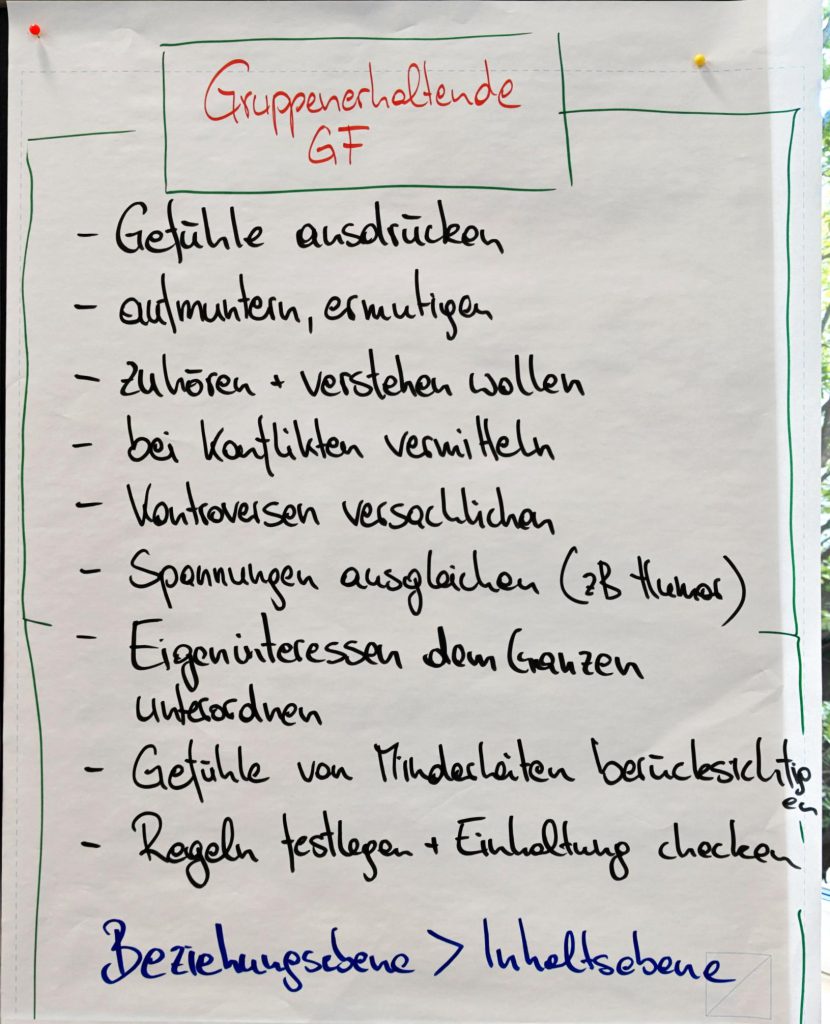 Gruppenerhaltende
GF
- Gefühle ausdrücken
- aufmuntern, ermutigen
- zuhören + verstehen wollen
- bei Konflikten vermitteln
- Kontroversen versachlichen
- Spannungen ausgleichen (zB Humor)
- Eigeninteressen dem Ganzen
unterordnen
- Gefühle von Minderheiten berücksichtig
en
- Regeln festlegen + Einhaltung checken
Beziehungsebene > Inhaltsebene